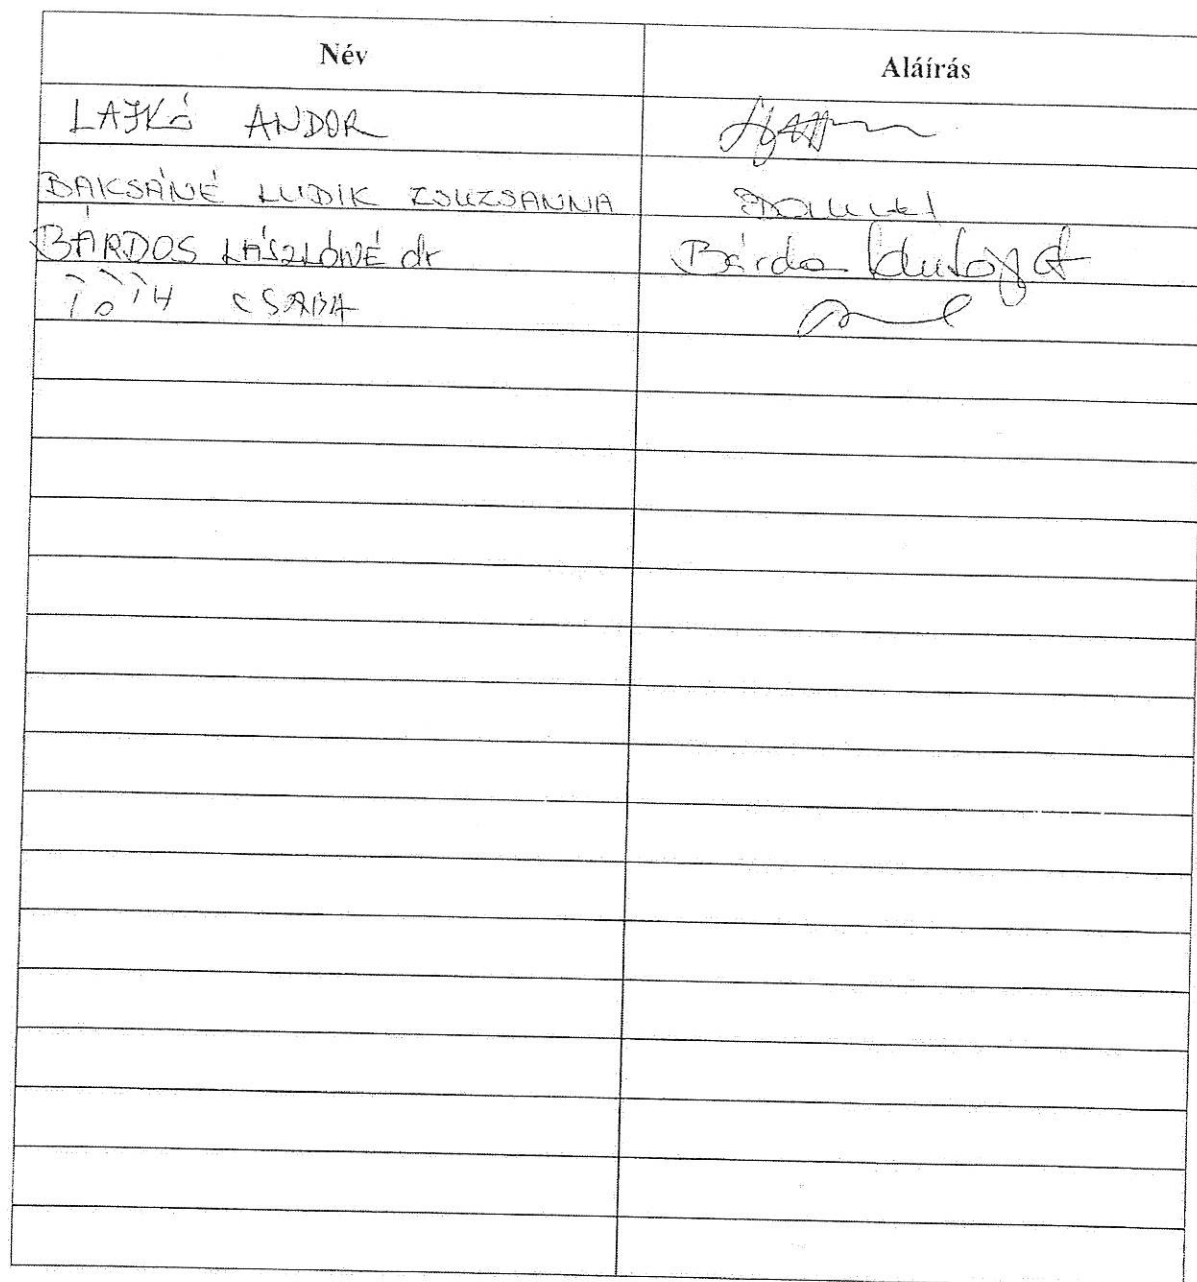 Név Aláírás
LAJKÓ ANDOR
BAKSÁNÉ LUDIK ZSUZSANNA
BÁRDOS LÁSZLÓNÉ dr Bárdos Lászlóné dr
TÓTH CSABA